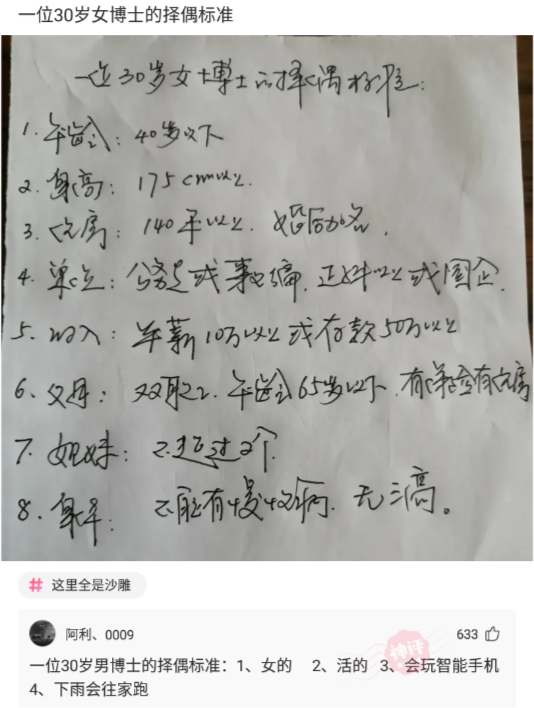 一位30岁女博士的择偶标准
一位30岁女博士的择偶标准：
1. 年龄：40岁以下
2. 身高：175cm以上.
3. 住房：140平以上. 婚后加名.
4. 单位：公务员或事业编. 正科以上或国企.
5. 收入：年薪10万以上或存款50万以上
6、父母：双职工. 年龄65岁以下. 有养老金有住房
7. 姐妹：不超过2个.
8. 身体：不能有慢性病. 无三高。
# 这里全是沙雕
阿利、0009
633
神评
一位30岁男博士的择偶标准：1、女的 2、活的 3、会玩智能手机
4、下雨会往家跑